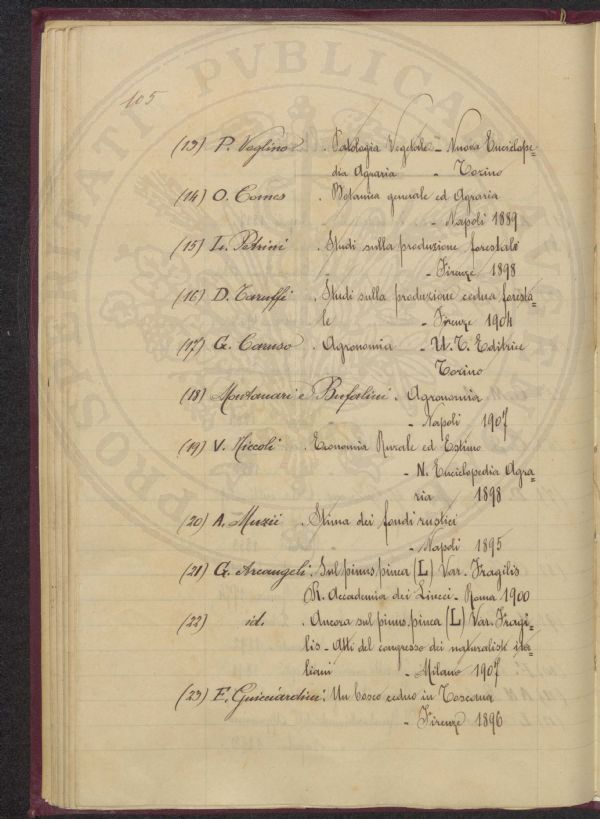 105
(13) P. Voglino . Patologia Vegetale - Nuova Enciclope-
dia Agraria - Torino
(14) O. Comes . Botanica generale ed Agraria
- Napoli 1889
(15) L. Petrini . Studi sulla produzione forestale
- Firenze 1898
(16) D. Taruffi . Studi sulla produzione cedua foresta-
le - Firenze 1904
(17) G. Caruso . Agronomia - U. T. Editrice
Torino
(18) Montanari e Bufalini . Agronomia
- Napoli 1907
(19) V. Niccoli . Economia Rurale ed Estimo
- N. Enciclopedia Agra-
ria 1898
(20) A. Muzii . Stima dei fondi rustici
- Napoli 1895
(21) G. Arcangeli . Sul pinus pinea (L) Var. Fragilis
R. Accademia dei Lincei - Roma 1900
(22) id. . Ancora sul pinus pinea (L) Var. Fragi-
lis - Atti del congresso dei naturalisti ita-
liani - Milano 1907
(23) F. Guicciardini . Un bosco ceduo in Toscana
- Firenze 1896
PROSPERITATI PVBLICAE AVGENDAE